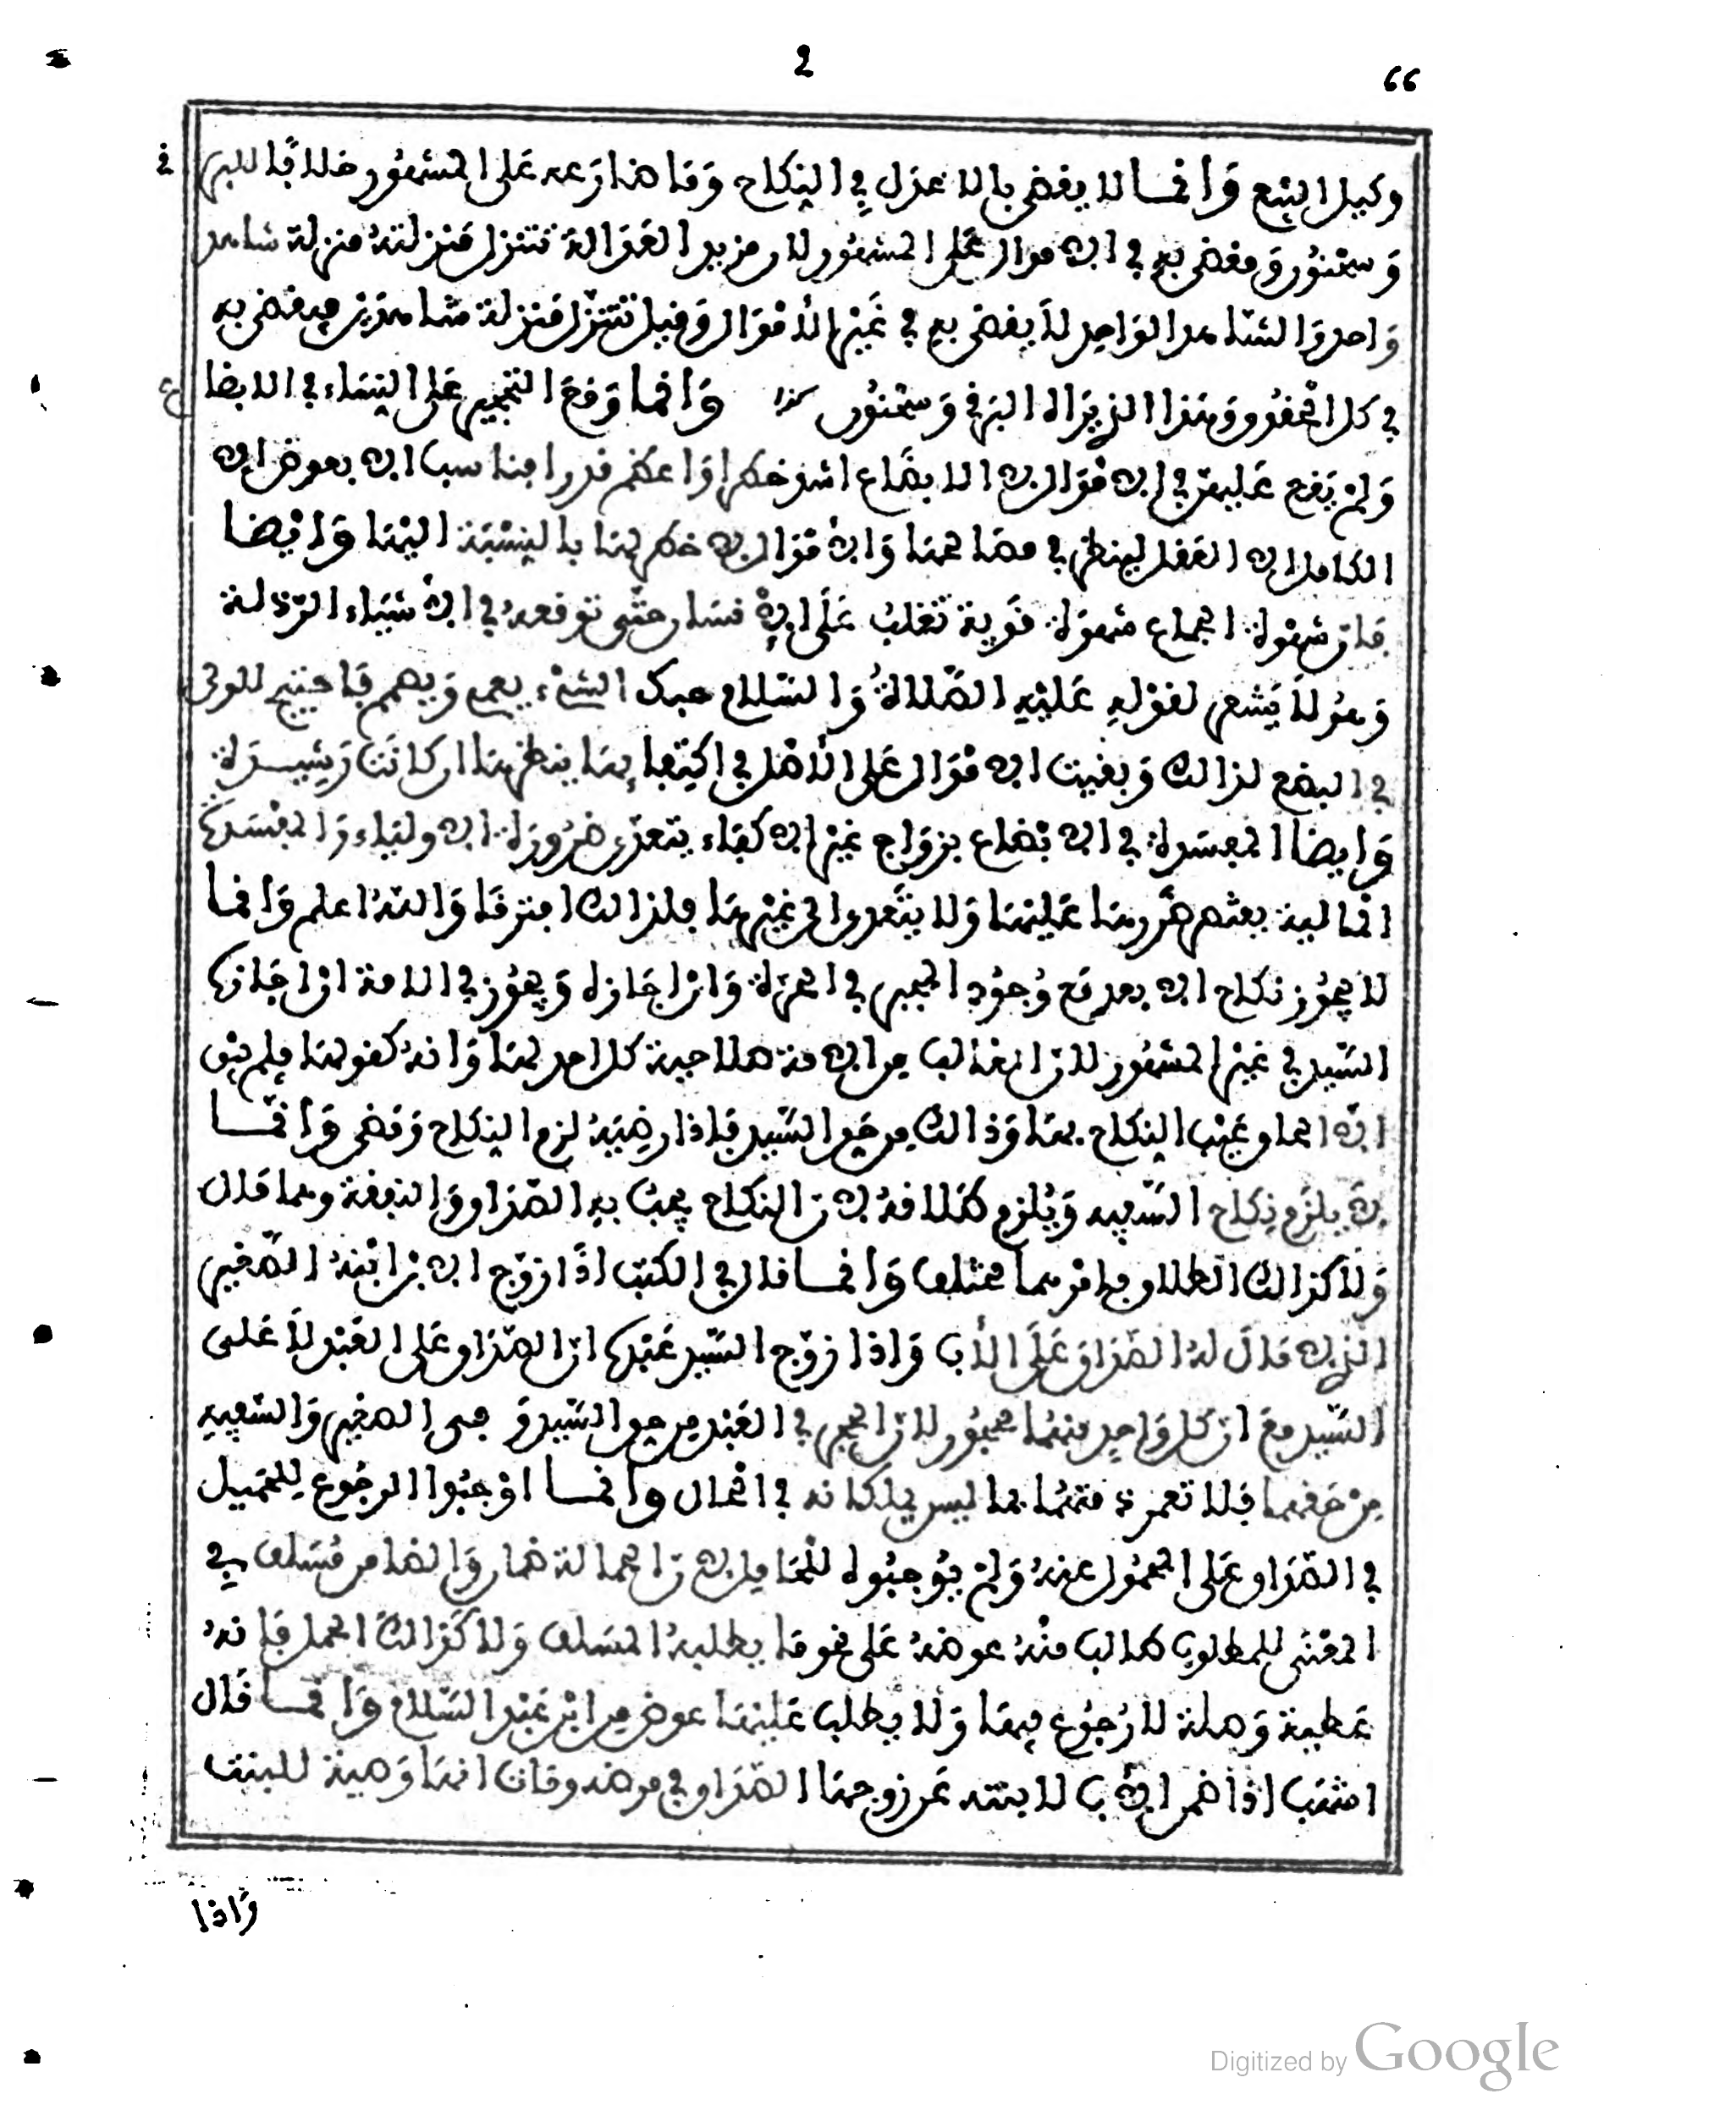 2
66
وكيل البيع وَانما لا يقضى بالاعزل في النكاح وَما ضارعه عَلى المشهُور خلافا للبر في
وَسحنُون وَيقضى به في الاموال عَلى المشهُور لان مزيد العَدَالة تتنزل مَنزلتهُ منزلة شاهد
وَاحد وَالشاهد الوَاحد لاَ يقضى به في غَير الأمْوَال وَقيل تتنزّل مَنزلة شاهدَين فيقضى به
في كل الحقُوق وَهَذا الذي رَاه البَرقي وَسحنُون كذا وَانما وَقعَ التحجير عَلى النسَاء في الابضا ع
وَلمْ يَقع عَليهن في الامْوَال لان الابضاع اشد خطرا وَاعظم قدرا فناسب الا يعوض الا
الكامل العَقل لينظر في مصَالحهَا وَالامْوَال لا خطر لهَا بالنسْبَة اليْهَا وَايْضا
فان شهْوة الجماع شهوَة قوية تغلبُ عَلَى الانْسَان حتى توقعهُ في الأشيَاء الرّذلة
وَهوُ لاَ يَشعر لقوْلهِ عَليْهِ الصّلاةُ وَالسّلام حبك الشيْء يعمي وَيصم فاحتيج للولي
في البضع لذالك وَبقيت الامْوَال عَلى الأصْل في اكتفا بهَا ينظرهَا ان كانَت رَشيدَة
وَايضا المفسَدة في الابْضاع بزوَاج غيْر الاكفَاء يتعدّى ضرُورَة الاوليَاء وَالمفْسَدة
المَالية يقتصر ضَررهَا عَليْهَا وَلا يتَعدى الى غيْرهَا فلذالك افترقا وَاللهُ اعلم وَانما
لا يجوُز نكاح الابعد مَع وُجوُد المجبر في الحرَة وَان اجَازه وَيجوُز في الامة ان اجَازه
السّيد في غيْر المشهُور لان الغالب من الامة صلاحية كل احد لهَا وَانهُ كفو لهَا فلم يبْق
الا الحاق عَيْب النكاح بهَا وَذالك من حَق السّيد فاذا رضيَهُ لزم النكاح وَمضى وَانما
لا يلزَم نكاح السّفيه وَيُلزم طَلاقهُ لان النكاح يجبُ بهِ الصّدَاق وَالنفقة وهما مَال
وَلاَ كذالك الطلاق فامْرهما مختلف وَانما قال في الكتب اذَا زوّج الابْن ابْنهُ الصّغير
الذي لا مَال لهُ الصّدَاق عَلَى الأب وَاذا زوّج السّيد عَبْدَه ان الصّدَاق عَلى العَبْد لاَ عَلى
السّيد معَ ان كل وَاحد منهُما مجبُور لان الجبر في العَبْد من حق السّيد وَ في الصغير وَالسّفيه
منْ حَقهما فلا تعمر ذ متهُما بما ليس يملكانه في الحَال وانما اوْجبُوا الرجُوع للحَميل
في الصّدَاق عَلى المحمُول عنهُ وَلمْ يُوجبُوا للحَامل لان الحمالة ضمان وَالضامن مُسَلف في
المعْنى للمطلوب طالب منْهُ عوضهُ عَلى نحو ما يطلبهُ المسَلف وَلا كذَالك الحمل فانهُ
عَطية وَصلة لا رُجوُع فيهَا وَلا يطلب عَليْهَا عوض من ابْن عَبْد السّلام وَانما قال
اشهَب اذا ضمن الأب لابنته عَن زوجهَا الصّدَاق في مرضه ومَات انهَا وَصية للبنت
وَاذا
Digitized by Google